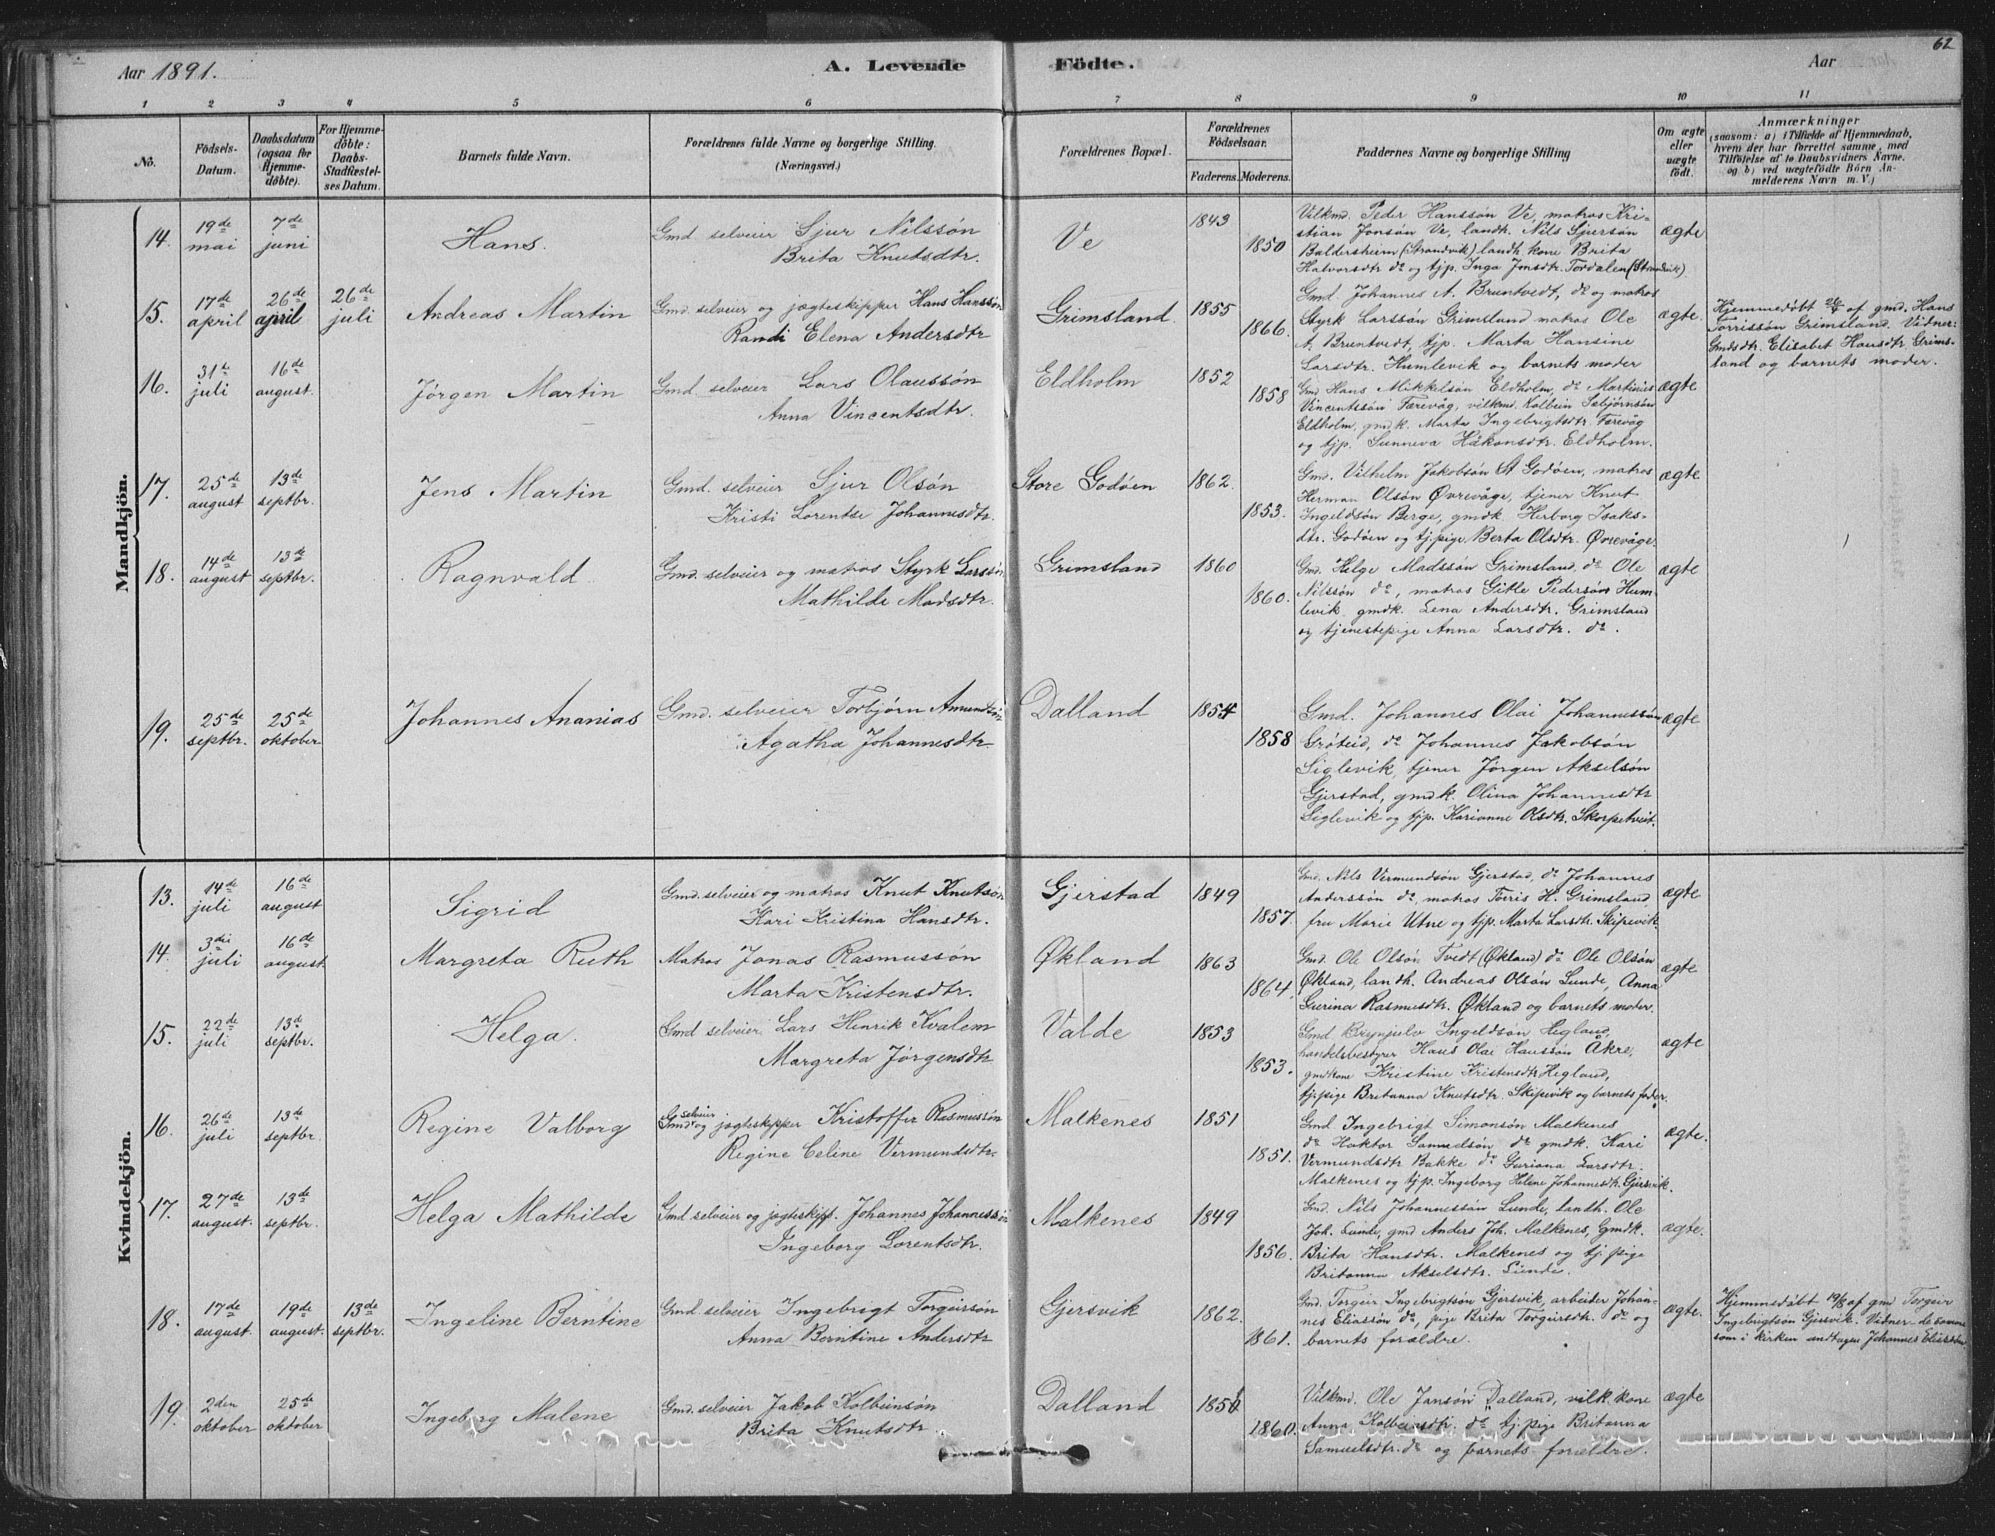 62
Aar 1891.
A. Levende Födte.
Aar
1 2 3 4 5 6 7 8 9 10 11
No.
Födsels-
Datum.
Daabsdatum
(ogsaa for
Hjemme-
döbte).
For Hjemme-
döbte:
Daabs-
Stadfæstel-
ses Datum.
Barnets fulde Navn.
Forældrenes fulde Navne og borgerlige Stilling.
(Næringsvei.)
Forældrenes Bopæl.
Forældrenes
Födselsaar.
Faderens. Moderens.
Faddernes Navne og borgerlige Stilling
Om ægte
eller
uægte
født.
Anmærkninger
(saasom: a) i Tilfælde af Hjemmedaab,
hvem der har forrettet samme, med
Tilföielse af to Daabsvidners Navne.
og b) ved uægtefödte Börn An-
melderens Navn m. V.)
Mandkjön.
14.
19de
mai
7de
juni
Hans.
Gmd selveier Sjur Nilssön
Brita Knutsdtr.
Ve
1843
1850
Vilkmd. Peder Hanssön Ve, matros Kri-
stian Jonsön Ve, landh. Nils Sjursön
Baldersheim (Strandvik) landh. kone Brita
Halvorsdtr do og tjp. Inga Jonsdtr. Tordalen (Strandvik)
ægte
15.
17de
april
26de
april
26de
juli
Andreas Martin
Gmd selveier og jægteskipper Hans Hanssön
Randi Elena Andersdtr
Grimsland.
1855
1866.
Gmd Johannes A. Bruntvedt, do og matros
Styrk Larssön Grimsland matros Ole
A. Bruntvedt, tjp. Marta Hansine
Larsdtr. Humlevik og barnets moder
ægte.
Hjemmedöbt 26/4 af gmd. Hans
Torrissön Grimsland. Vidner:
Gmdsdtr. Elisabet Hansdtr. Grims-
land og barnets moder.
16.
31te
juli
16de
august.
Jörgen Martin
Gmd selveier Lars Olaussön
Anna Vincentsdtr.
Eldholm
1852
1858
Gmd Hans Mikkelsön Eldholm, do Martinius
Vincentssön Færevåg, vilkmd. Kolbein Sebjörnsön
Eldholm, gmdk. Marta Ingebrigtsdtr. Færevåg
og tjp. Sunneva Håkonsdtr. Eldholm.
ægte
17.
25de
august
13de
septbr.
Jens Martin
Gmd. selveier Sjur Olsön
Kristi Lorentse Johannesdtr.
Store Godöen
1862.
1853.
Gmd. Vilhelm Jakobsön St Godöen, matros
Herman Olsön Øvrevåge, tjener Knut
Ingeldsön Berge, gmdk. Herborg Isaks-
dtr. Godöen og tj.pige Berta Olsdtr. Øvrevåge.
ægte
18.
14de
august
13de
septbr.
Ragnvald
Gmd. selveier og matros Styrk Larssön
Mathilde Madsdtr.
Grimsland
1860
1860.
Gmd. Helge Madssön Grimsland, do Ole
Nilssön do, matros Gitle Pedersön Hum-
levik gmdk. Lena Andersdtr. Grimsland
og tjenestepige Anna Larsdtr. do.
ægte
19.
25de
septbr.
25de
oktober
Johannes Ananias
Gmd. selveier Torbjörn Amundssön
Agatha Johannesdtr
Dalland
1854
1858
Gmd. Johannes Olai Johannessön
Gröteid, do Johannes Jakobsön
Siglevik, tjener Jörgen Akselsön
Gjerstad, gmdk. Olina Johannesdtr
Siglevik og tjp. Karianne Olsdtr. Skorpetveit.
ægte
Kvindekjön.
13.
14de
juli
16de
august
Sigrid
Gmd. selveier og matros Knut Knutsön
Kari Kristina Hansdtr.
Gjerstad
1849
1857.
Gmd. Nils Vermundsön Gjerstad, do Johannes
Anderssön do, matros Torris H. Grimsland
fru Marie Utne og tjp. Marta Larsdtr. Skipevik.
ægte
14.
3die
juli
16de
august.
Margreta Ruth
Matros Jonas Rasmussön
Marta Kristensdtr.
Økland
1863
1864.
Gmd. Ole Olsön Tvedt (Økland) do Ole Olsön
Økland, landh. Andreas Olsön Lunde, Anna
Gurina Rasmusdtr. Økland og barnets moder.
ægte
15.
22de
juli
13de
septbr.
Helga.
Gmd selveier Lars Henrik Kvalem
Margreta Jörgensdtr
Valde
1853
1853.
Gmd Brynjulv Ingeldsön Hegland,
handelsbestyrer Hans Olai Hanssön Åkre,
gmdkone Kristine Kristensdtr Hegland,
tj.pige Britanna Knutsdtr. Skipevik og barnets fader.
ægte
16.
26de
juli
13de
septbr.
Regine Valborg
Gmd selveier og jægteskipper Kristoffer Rasmussön
Regine Celine Vermundsdtr.
Malkenes
1851
1851.
Gmd Ingebrigt Simonsön Malkenes
do Haktor Samuelsön do gmdk. Kari
Vermundsdtr Bakke do Guriana Larsdtr.
Malkenes og tjp. Ingeborg Helene Johannesdtr. Gjersvik.
ægte.
17.
27de
august.
13de
septbr.
Helga Mathilde
Gmd selveier og jægteskipp. Johannes Johannessön
Ingeborg Lorentsdtr.
Malkenes
1849
1856.
Gmd. Nils Johannessön Lunde, landh. Ole
Joh. Lunde, gmd Anders Joh. Malkenes, Gmdk.
Brita Hansdtr. Malkenes og tj.pige
Britanna Akselsdtr. Lunde.
ægte.
18.
17de
august.
19de
august.
13de
septbr.
Ingeline Berntine
Gmd. selveier Ingebrigt Torgeirsön
Anna Berntine Andersdtr
Gjersvik
1862.
1861.
Gmd. Torgeir Ingebrigtsön Gjersvik, arbeider Johan-
nes Eliassön do, pige Brita Torgeirsdtr. do og
barnets forældre.
ægte.
Hjemmedöbt 19/8 af gmd Torgeir
Ingebrigtsön Gjersvik. Vidner de samme
som i kirken undtagen Johannes Eliassön
19.
2den
oktober
25de
oktober
Ingeborg Malene
Gmd. selveier Jakob Kolbeinsön
Brita Knutsdtr.
Dalland
1860.
Vilkmd. Ole Jansön Dalland, vilk.kone
Anna Kolbeinsdtr. do tj.pige Britanna
Samuelsdtr. do og barnets forældre.
ægte